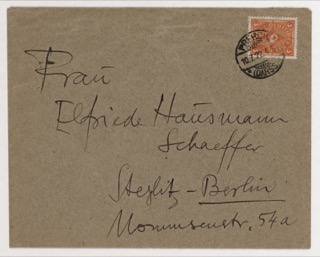 Frau
Elfriede Hausmann
Schaeffer
Steglitz-Berlin
Mommsenstr. 54a